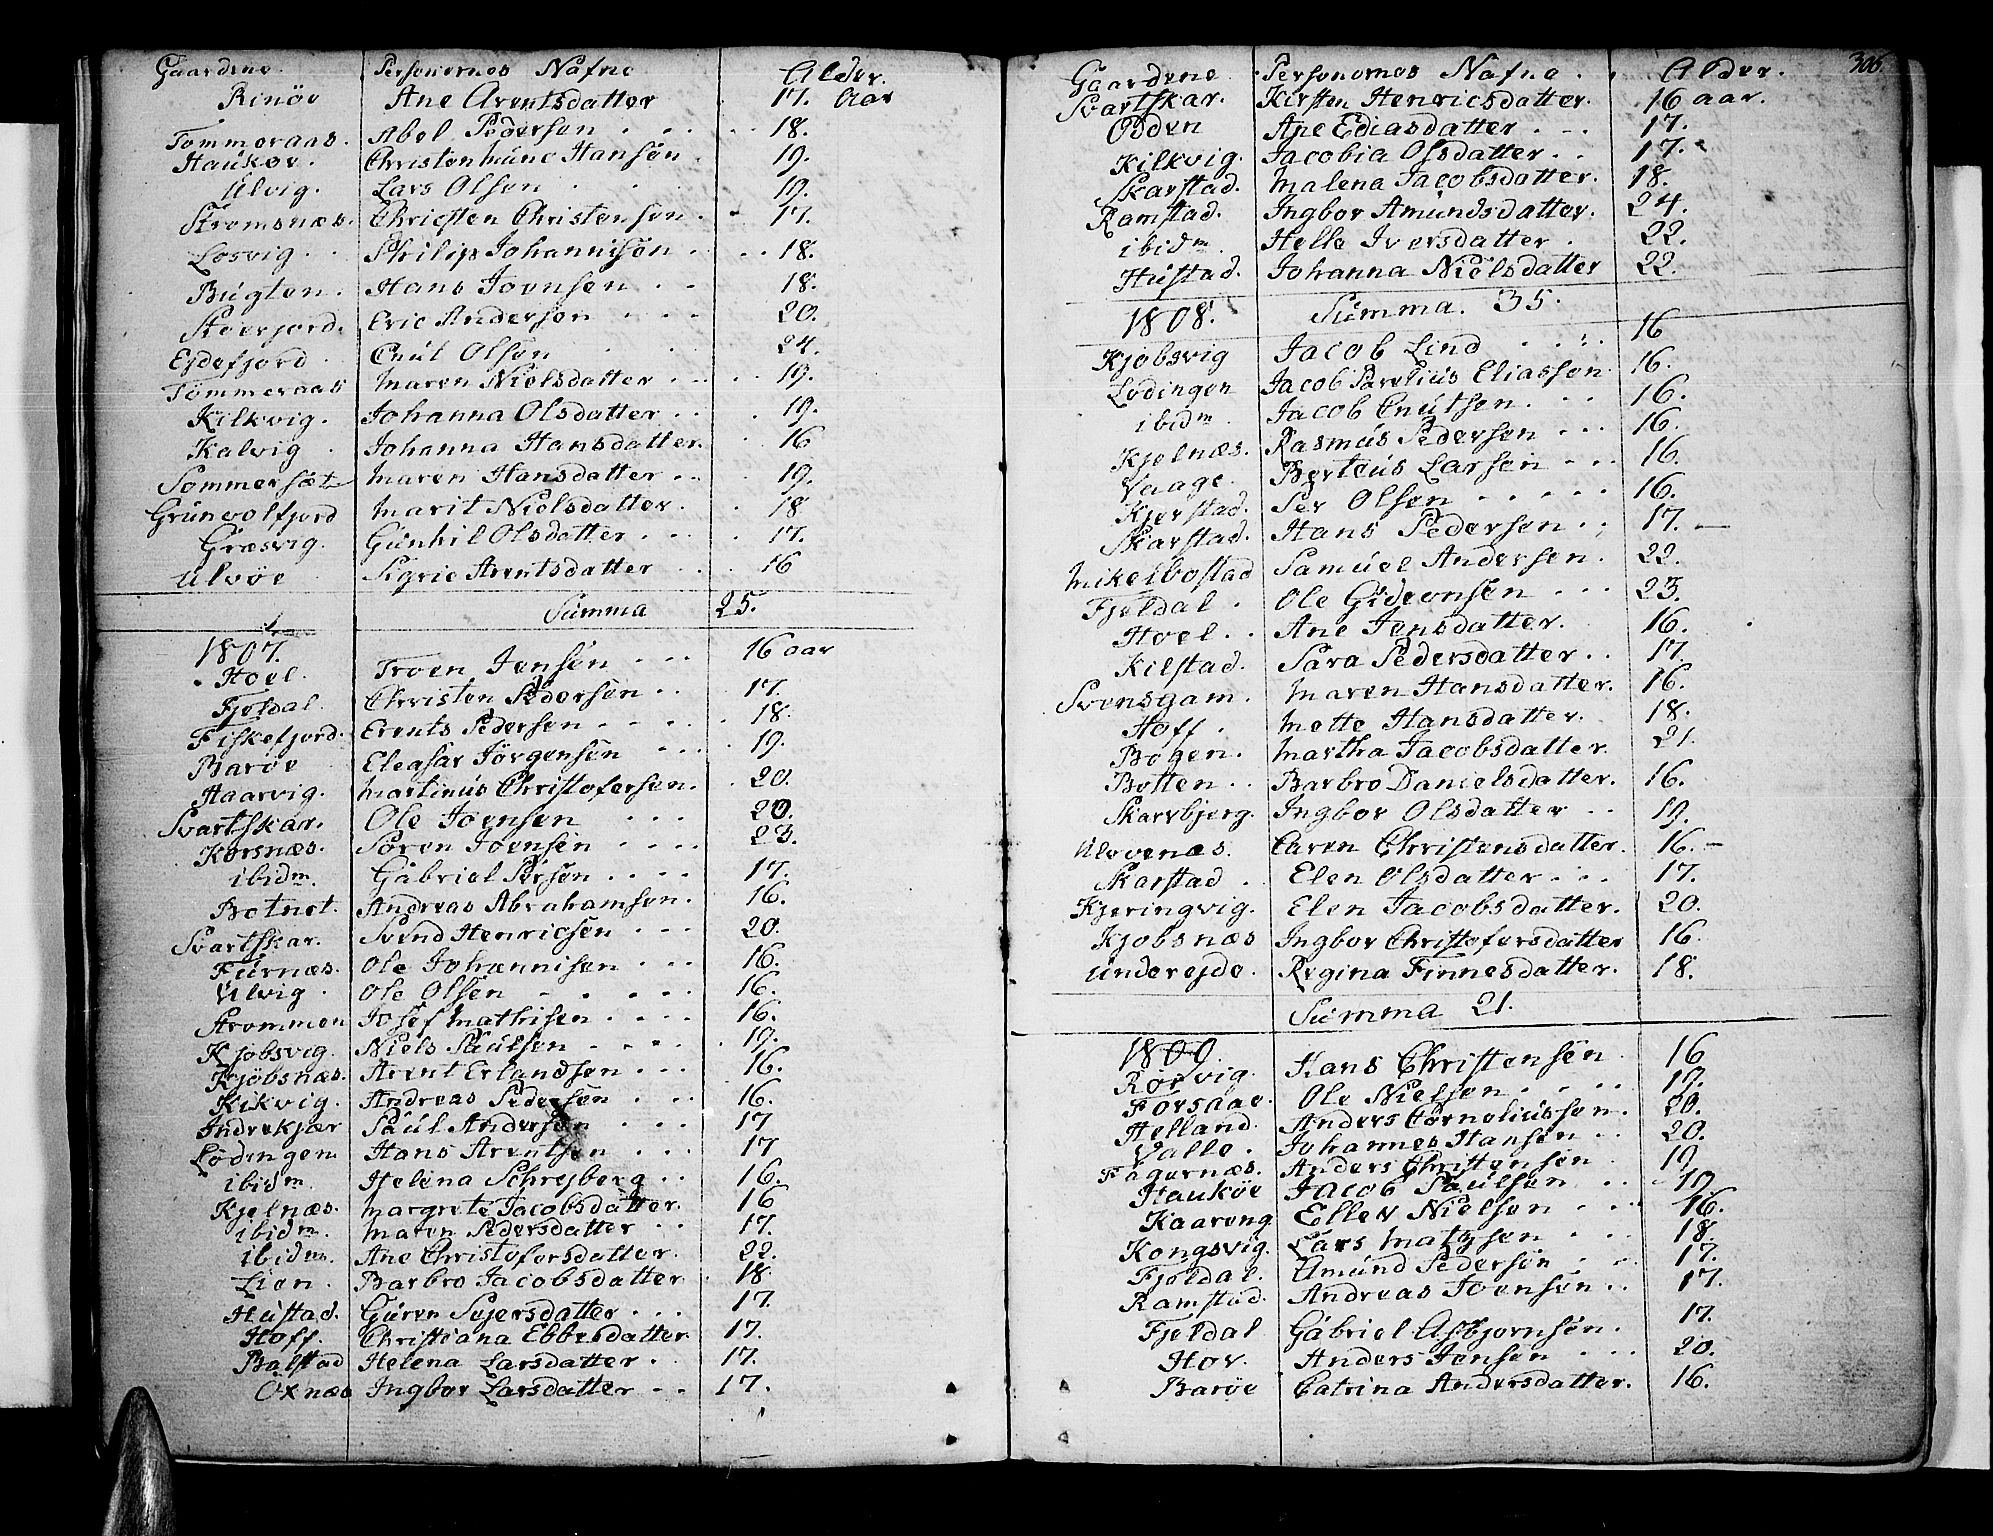 Gaardene. Personernes Nafne Alder.
Rinöe Ane Arentsdatter 17. Aar
Tommeraas. Abel Pedersen 18.
Haukøe. Christen Hansen 19.
Ulvig. Lars Olsen 19.
Strømsnæs. Christen Christensen 17.
Løsvig Philip Johannisen 18.
Bugten. Hans Joensen 18.
Støerfjord. Eric Andersen 20.
Ejdefjord Cnut Olsen 24.
Tømmeraas Maren Nielsdatter 19.
Kilkvig. Johanna Olsdatter 19.
Kalvig Johanna Hansdatter. 16
Sommersæt Maren Hansdatter 19.
Grunvolfjord Marit Nielsdatter. 18
Græsvig. Gunhil Olsdatter 17.
Ulvöe Sigrie Arentsdatter 16
Summa 25.
1807.
Hoel. Troen Jensen 16 aar
Fjeldal. Christen Pedersen 17.
Fiskefjord. Erents Pedersen 18.
Barøe Eleasar Jörgensen 19.
Haarvig. Martinus Christofersen. 20.
Svartskar. Ole Joensen 20.
Korsnæs. Sören Joensen 23.
ibidm. Gabriel Persen 17.
Botnet. Andreas Abrahamsen. 16.
Svartskar. Svend Henricsen 20.
Furnæs. Ole Johannisen 16.
Ulvig Ole Olsen 16.
Strømmen Josef Mathisen 16.
Kjøbsvig. Niels Paulsen 19.
Kjøbsnæs. Arent Erlandsen 16.
Kikvig. Andreas Pedersen 16.
Indrekjær Paul Andersen 17
Lødingen Hans Arentsen 17
ibidm. Helena Schrejberg 16.
Kjelnæs. Margrete Jacobsdatter. 16
ibidm. Maren Pedersdatter 17.
ibidm. Ane Christofersdatter. 22.
Lien. Barbro Jacobsdatter 18.
Hustad. Guren Sejersdatter 17.
Hoff. Christiana Ebbesdatter 17.
Balstad Helena Larsdatter 17.
Oxnæs Ingbor Larsdatter 17.
306.
Gaardene Personernes Nafne. Alder.
Svartskar. Kirsten Henricsdatter. 16 aar.
Odden Ane Ediasdatter 17.
Kilkvig. Jacobia Olsdatter 17.
Skarstad. Malena Jacobsdatter. 18.
Ramstad. Ingbor Amundsdatter. 24.
ibidm. Helle Iversdatter 22.
Hustad. Johanna Nielsdatter 22.
1808. Summa. 35.
Kjobsvig Jacob Lind 16
Lødingen Jacob Parelius Eliassen. 16.
ibidm Jacob Cnutsen. 16.
Kjelnæs. Rasmus Pedersen 16.
Vaage. Berteus Larsen 16.
Kjerstad. Per Olsen 16.
Skarstad. Hans Pedersen 17.
Mikelbostad Samuel Andersen. 22.
Fjeldal. Ole Gideonsen 23.
Hoel. Ane Jensdatter. 16.
Kilstad. Sara Pedersdatter 17.
Svensgam. Maren Hansdatter. 16.
Hoff. Mette Hansdatter. 18.
Bogen. Martha Jacobsdatter 21.
Botten. Barbro Danielsdatter. 16.
Skarvbjerg. Ingbor Olsdatter 19.
Ulvenæs. Caren Christensdatter. 16.
Skarstad Elen Olsdatter 17.
Kjeringvig. Elen Jacobsdatter. 20.
Kjobsnæs Ingbor Christofersdatter 16.
Underejde. Regina Finnesdatter. 18.
Summa 21.
1809.
Rørvig. Hans Christensen 16
Forsaae. Ole Nielsen 19.
Helland. Anders Corneliussen. 20.
Valle. Johannes Hansen 20.
Fagernæs. Anders Christensen 19
Haukøe Jacob Paulsen 19.
Kaareng Eller Nielsen 16.
Kongsvig. Lars Matisen 18.
Fjeldal. Amund Pedersen 17.
Ramstad. Andreas Joensen 17.
Fjeldal Gabriel Asbjornsen. 17.
Hov. Anders Jensen 20.
Barøe Catrina Andersdatter. 16.